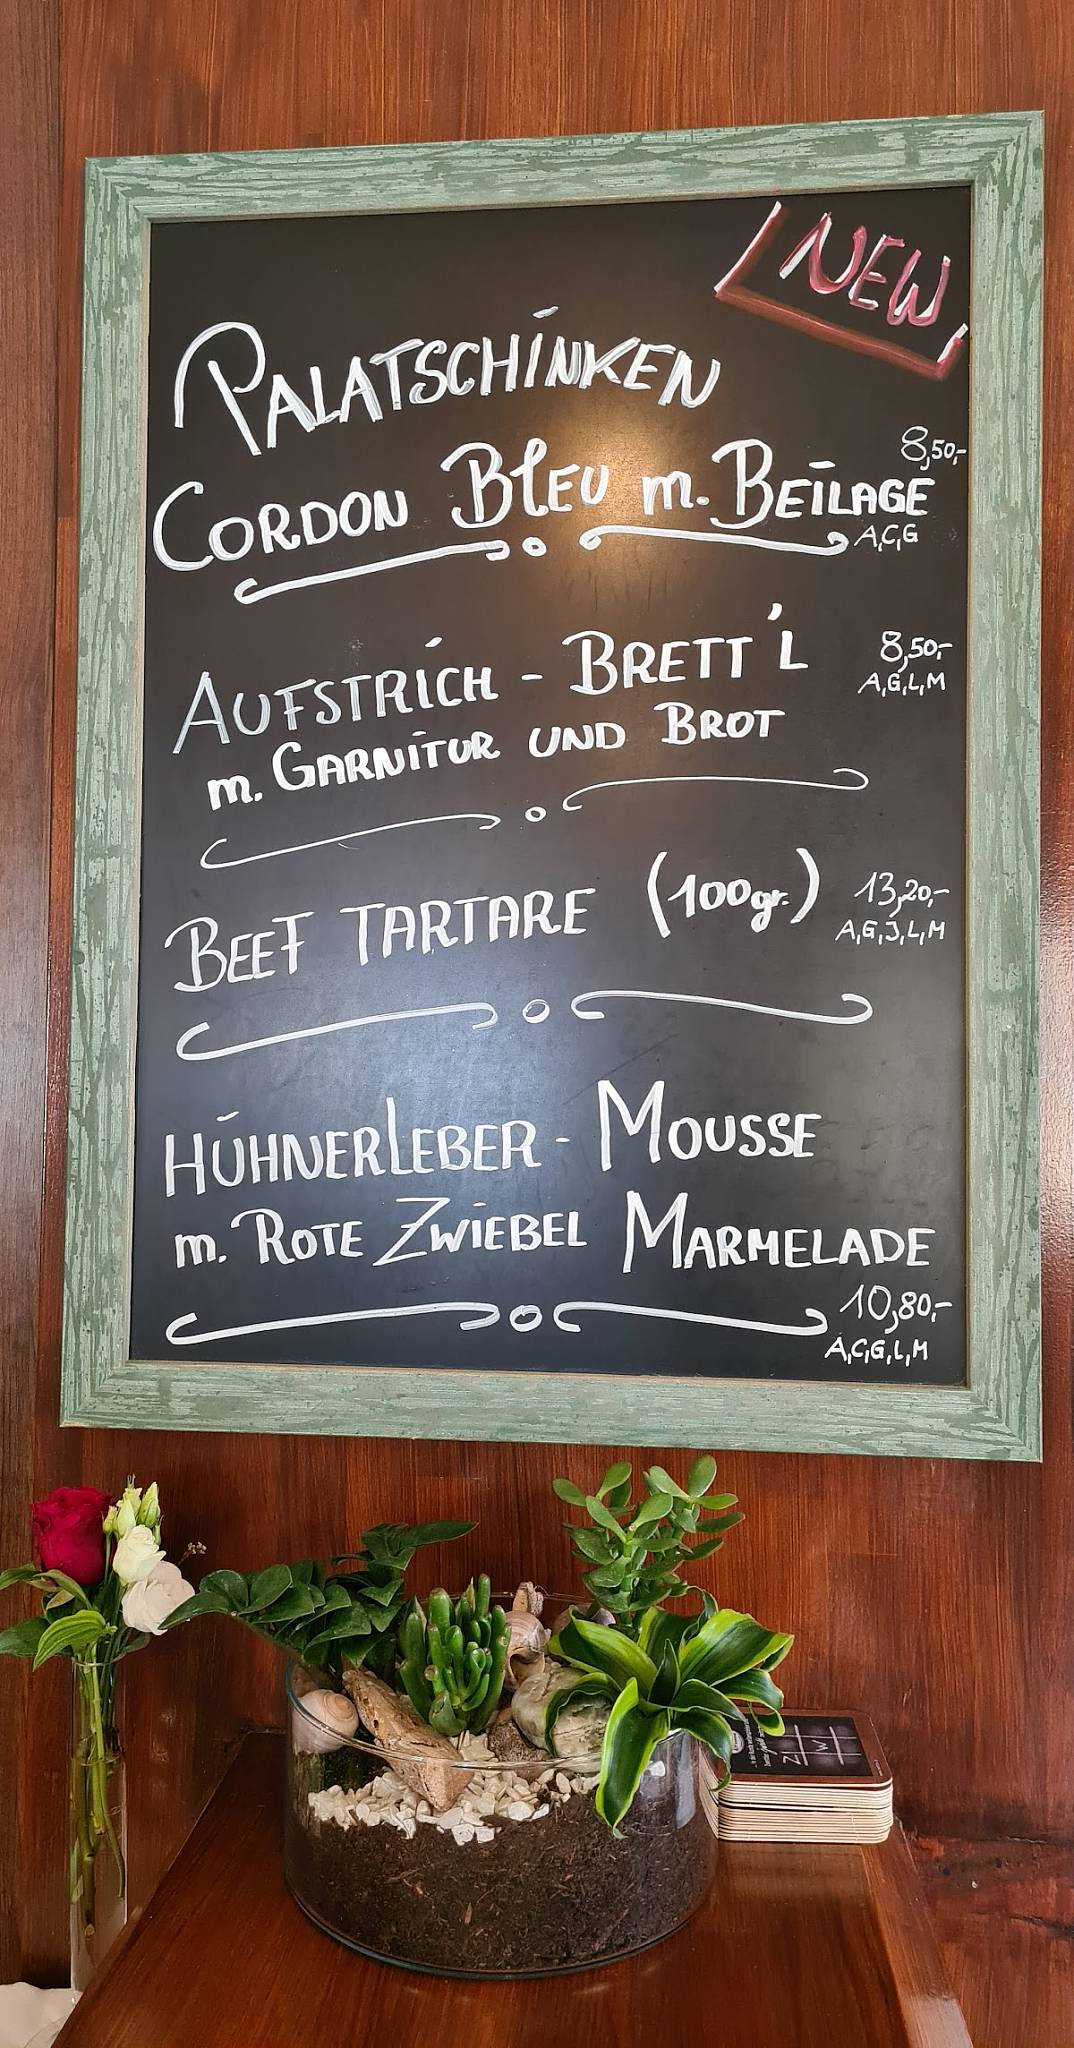 NEW
PALATSCHINKEN
8,50,-
CORDON BLEU m. BEILAGE
A,C,G
AUFSTRICH - BRETT'L
8,50,-
A,G,L,M
m. GARNITUR UND BROT
BEEF TARTARE (100gr.)
13,20,-
A,G,J,L,M
HÜHNERLEBER - MOUSSE
m. ROTE ZWIEBEL MARMELADE
10,80,-
A,C,G,L,M